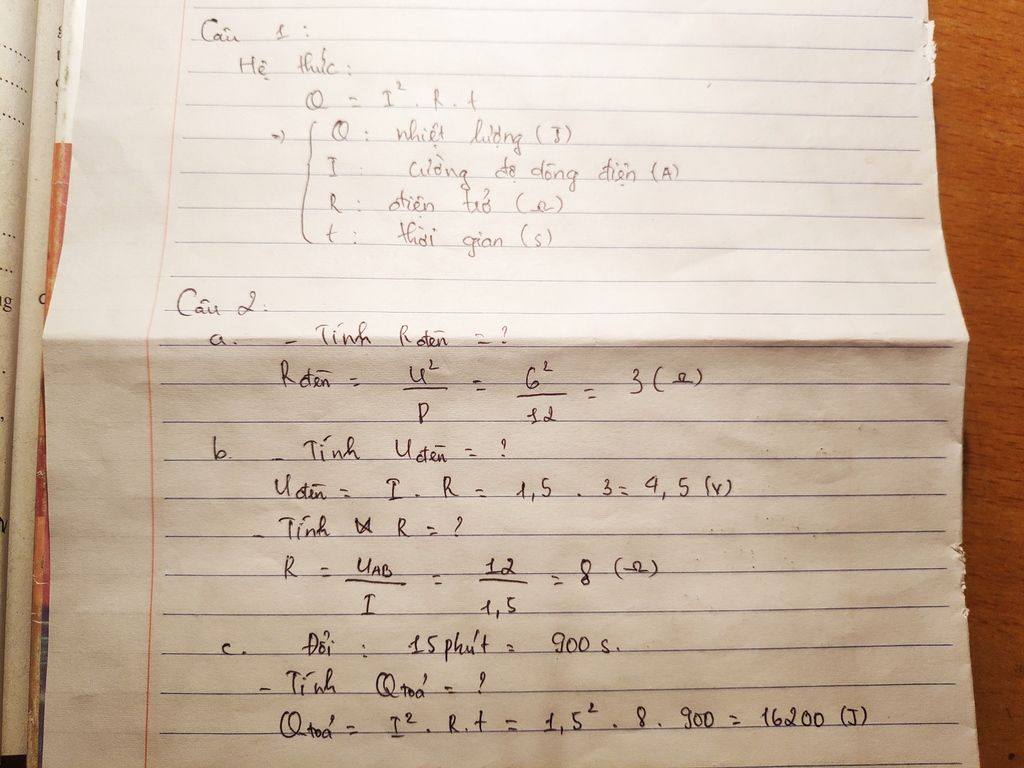 Câu 1 :
Hệ thức :
Q = I². R. t
=> { Q : nhiệt lượng (J)
I : cường độ dòng điện (A)
R : điện trở (Ω)
t : thời gian (s)
Câu 2 :
a. - Tính Rđèn = ?
Rđèn = U²/P = 6²/12 = 3 (Ω)
b. - Tính Uđèn = ?
Uđèn = I . R = 1,5 . 3 = 4,5 (V)
- Tính R = ?
R = UAB/I = 12/1,5 = 8 (Ω)
c. Đổi : 15 phút = 900 s.
- Tính Qtoả = ?
Qtoả = I² . R. t = 1,5² . 8 . 900 = 16200 (J)